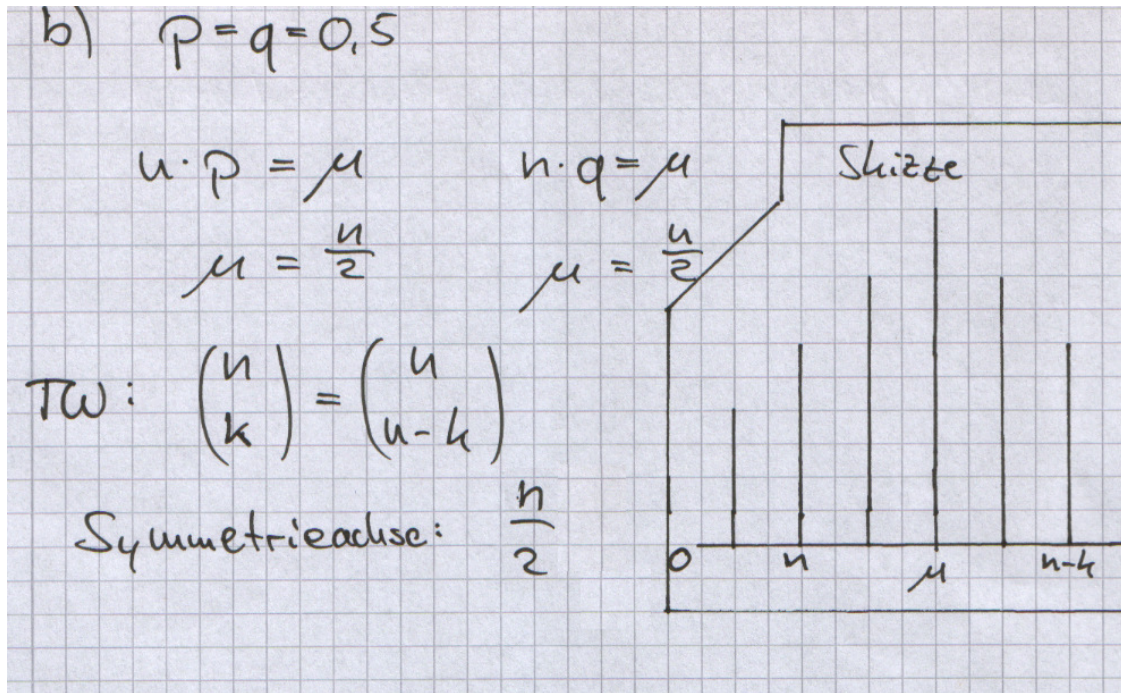 b) p = q = 0,5
n · p = μ
n · q = μ
μ = n/2
μ = n/2
TW: (n k) = (n n-k)
Symmetrieachse: n/2
Skizze
0 n μ n-k